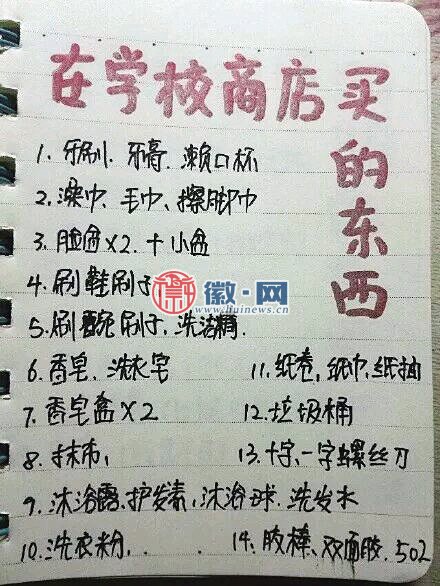 在学校商店买
的东西
1. 牙刷、牙膏、漱口杯
2. 澡巾、毛巾、擦脚巾
3. 脸盆×2. 十小盆
4. 刷鞋刷子
5. 刷碗刷子, 洗洁精.
徽·网
www.huinews.cn
6. 香皂, 洗衣皂
11. 纸卷, 纸巾, 纸抽
7. 香皂盒×2
12. 垃圾桶
8. 抹布,
13. 十字、一字螺丝刀
9. 沐浴露, 护发素, 沐浴球. 洗发水
10. 洗衣粉,
14. 胶棒、双面胶. 502